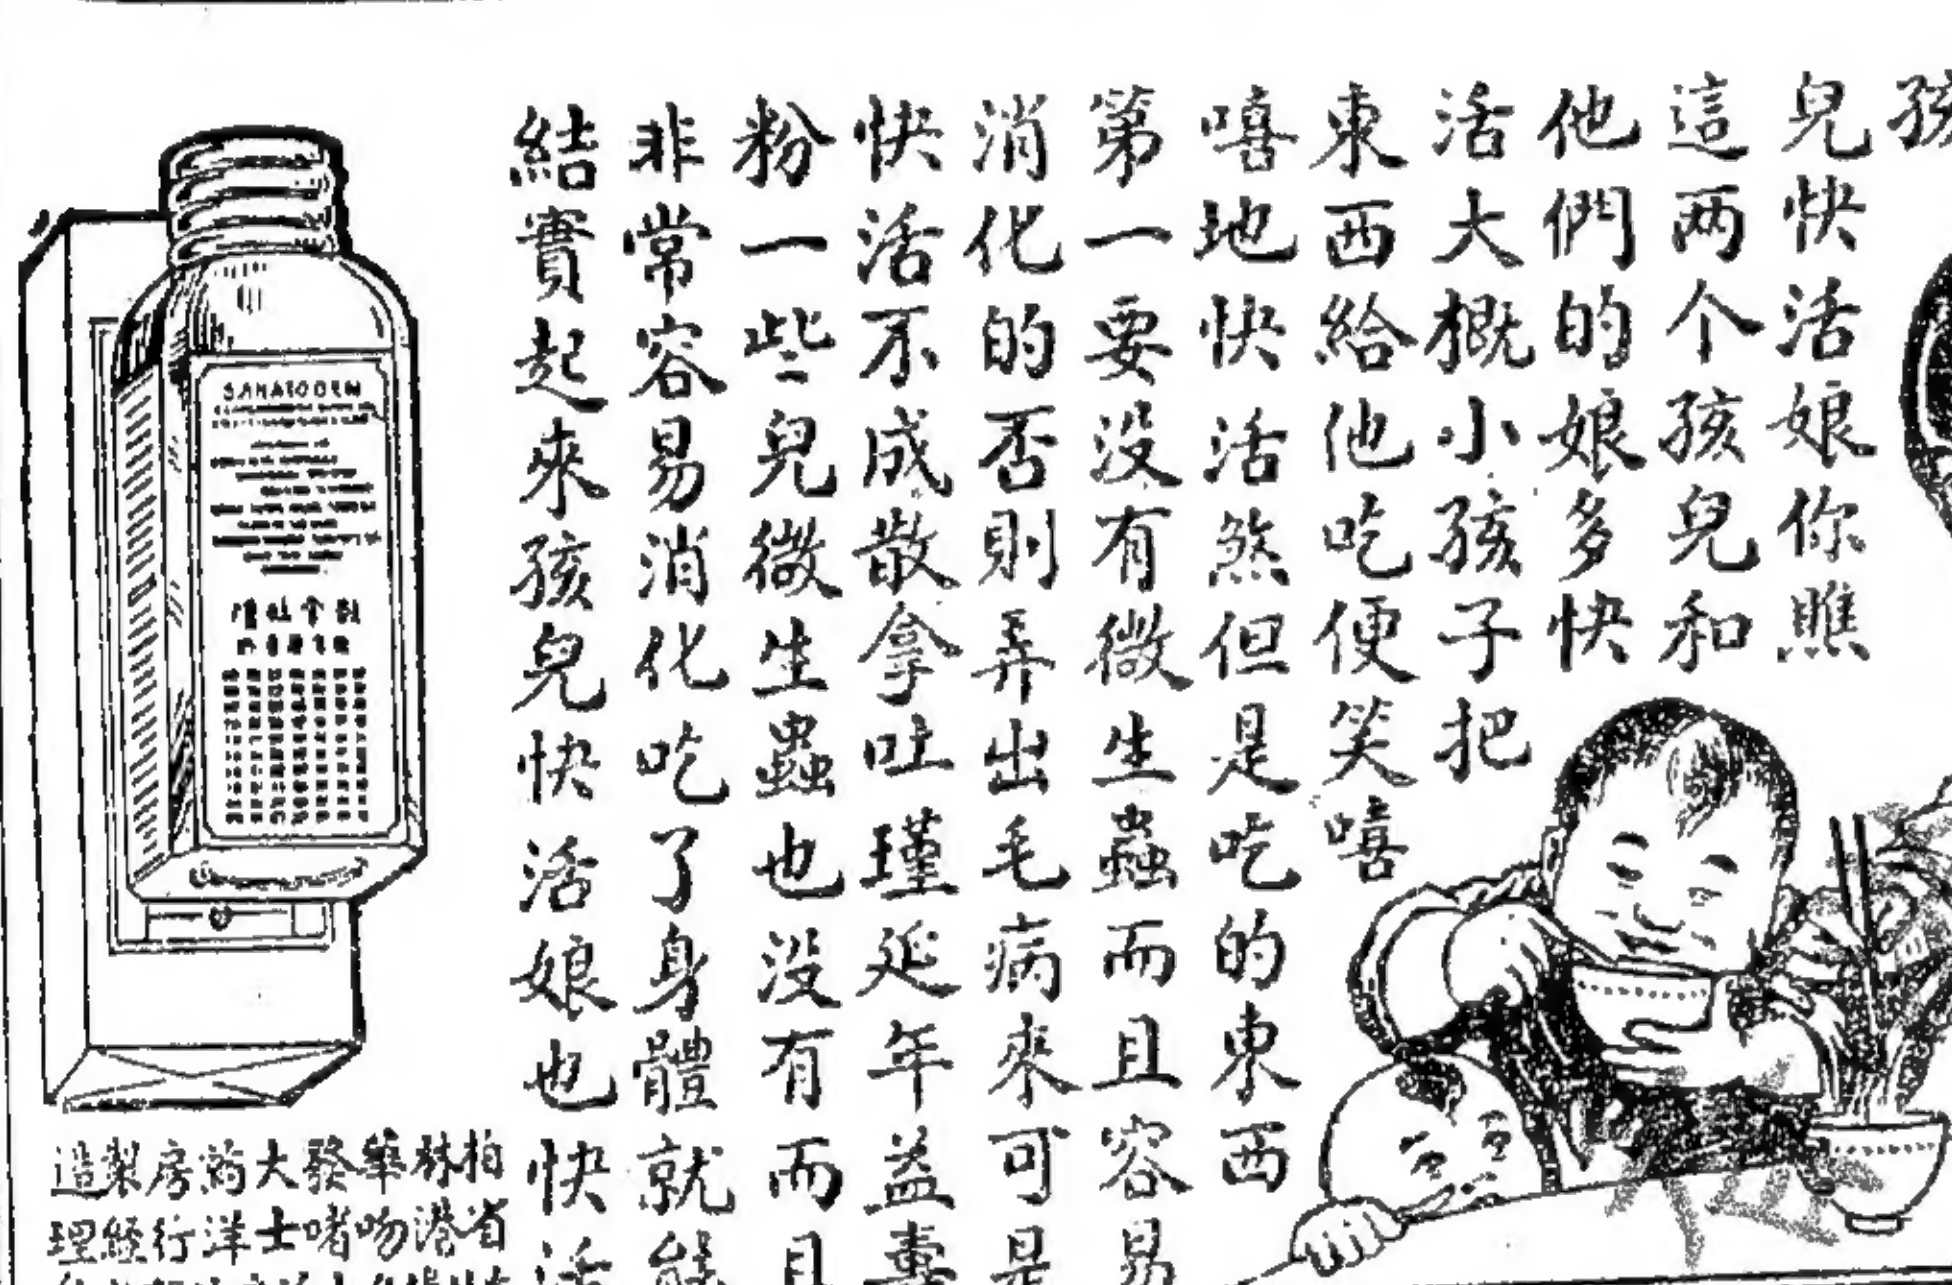 孩
兒快活娘你瞧
這两个孩兒和
他們的娘多快
活大概小孩子把
東西給他吃便笑嘻
嘻地快活煞但是吃的東西
第一要没有微生蟲而且容易
消化的否則弄出毛病來可是
快活不成散拿吐瑾延年益壽
粉一些兒微生蟲也没有而且
非常容易消化吃了身體就能
結實起來孩兒快活娘也快活
SANATOGEN
柏林華發大葯房製造
省港吻啫士洋行經理